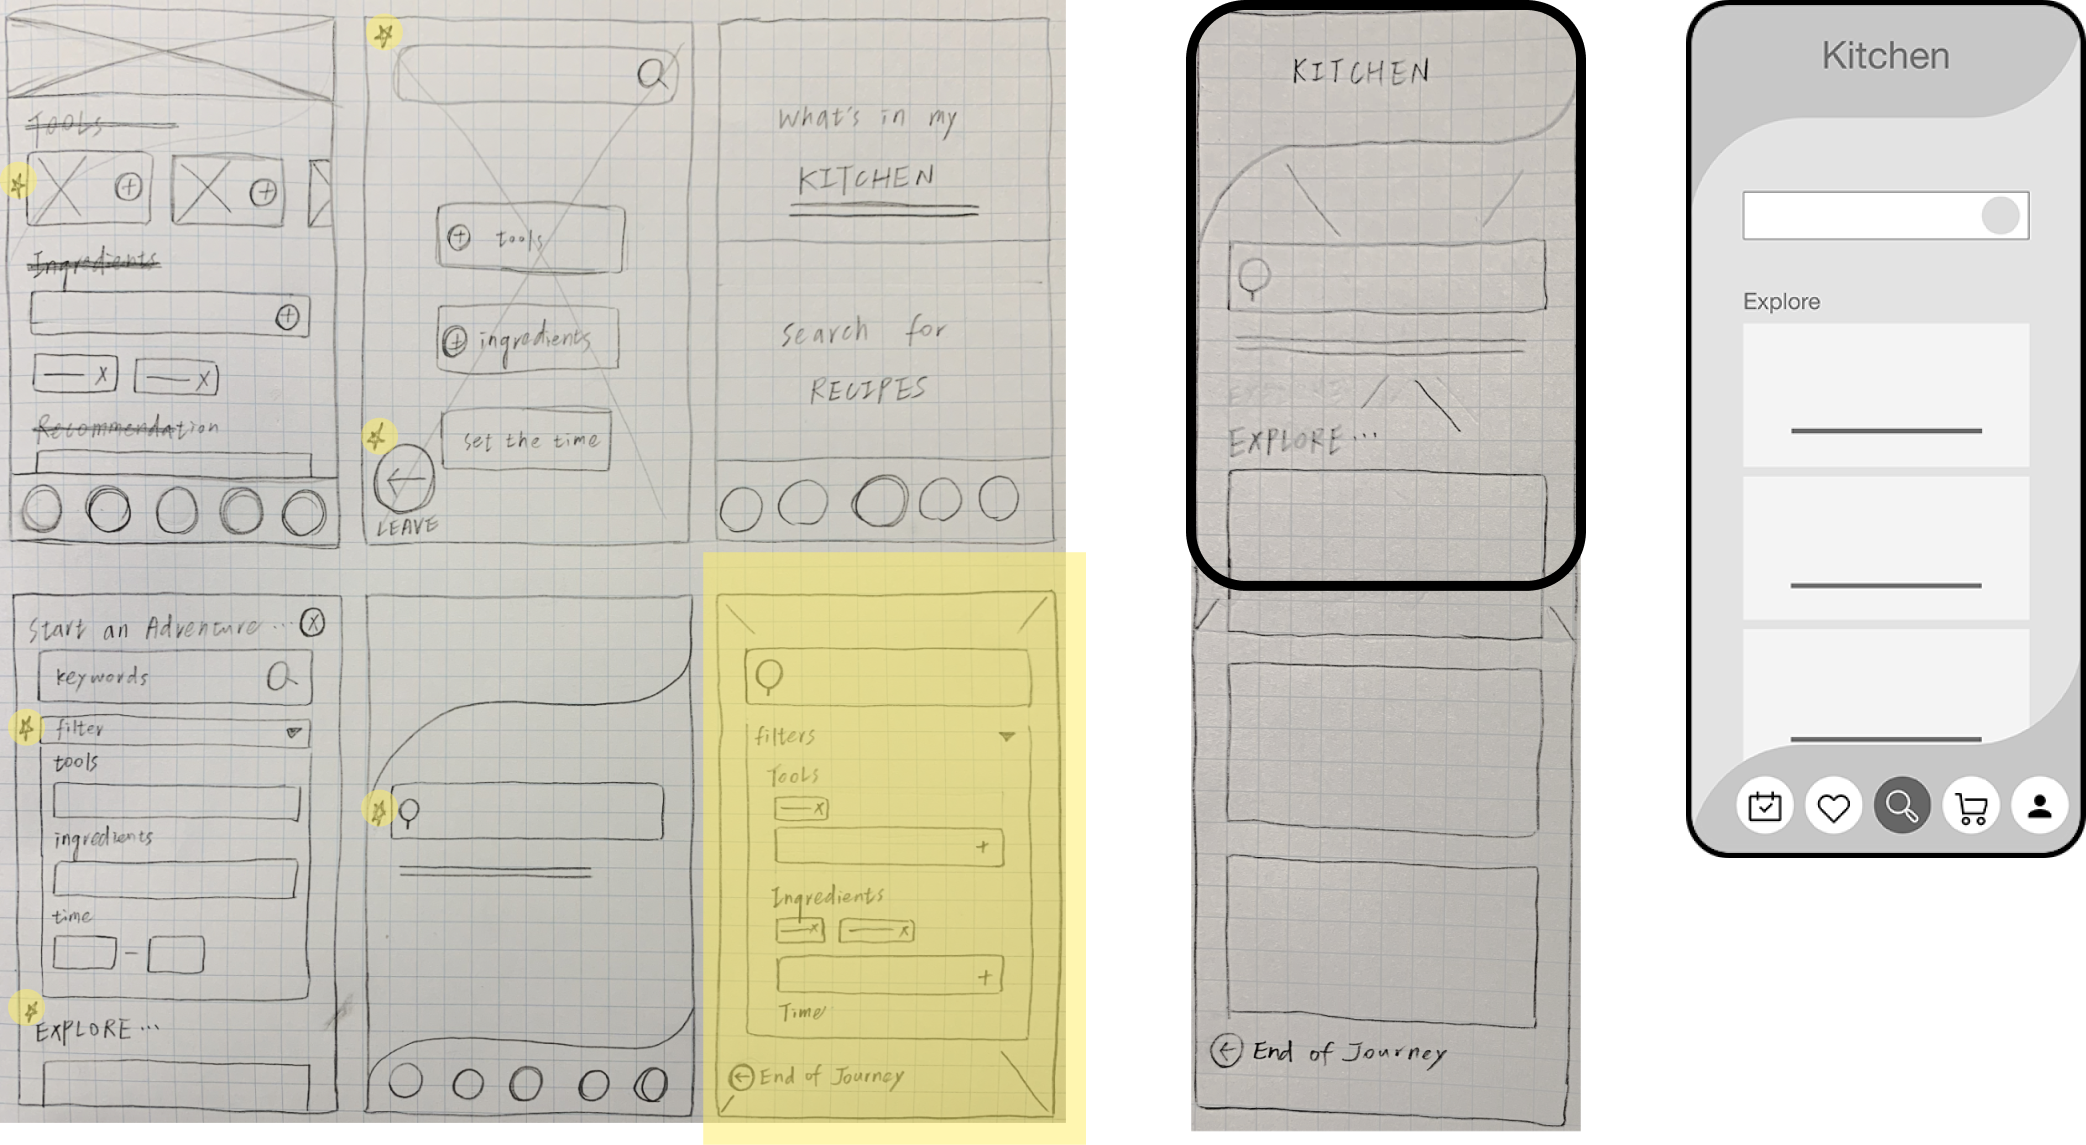 TOOLS
Ingredients
Recommendation
tools
ingredients
set the time
LEAVE
What's in my
KITCHEN
Search for
RECIPES
Start an Adventure ... X
keywords
filter
tools
ingredients
time
EXPLORE ...
filters
Tools
Ingredients
Time
End of Journey
KITCHEN
EXPLORE
EXPLORE ...
End of Journey
Kitchen
Explore